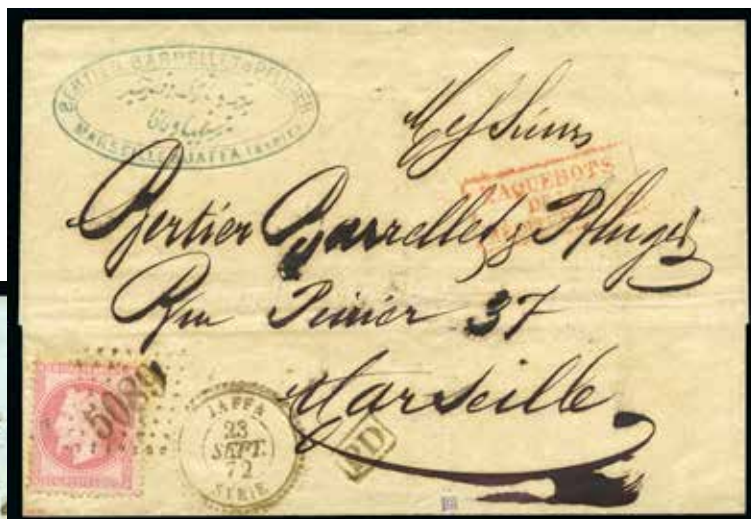 BERTIER BARRELLET & PFLUGER
MARSEILLE & JAFFA (SYRIE)
Messieurs
PAQUEBOTS
Bertier Barrellet & Pfluger
Rue 37
Marseille
5089
JAFFA
23
SEPT.
72
SYRIE
PD